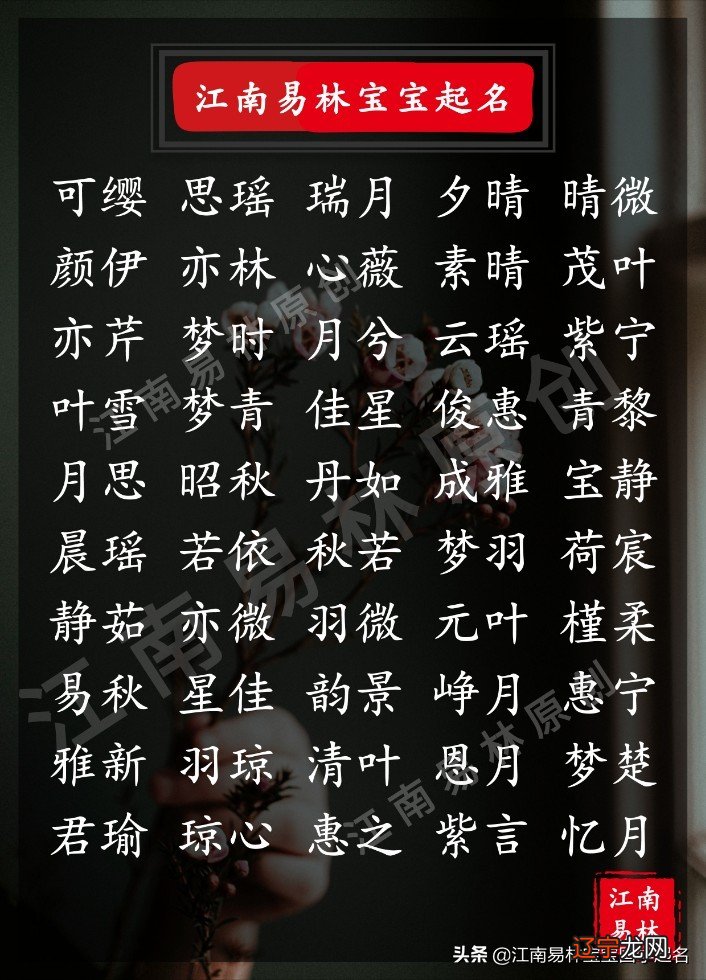 江南易林宝宝起名
可缨 思瑶 瑞月 夕晴 晴微
颜伊 亦林 心薇 素晴 茂叶
亦芹 梦时 月兮 云瑶 紫宁
叶雪 梦青 佳星 俊惠 青黎
月思 昭秋 丹如 成雅 宝静
晨瑶 若依 秋若 梦羽 荷宸
静茹 亦微 羽微 元叶 槿柔
易秋 星佳 韵景 峥月 惠宁
雅新 羽琼 清叶 恩月 梦楚
君瑜 琼心 惠之 紫言 忆月
江南易林原创
江南易林原创
江南易林原创
江南
易林
辽宁龙网
头条 @江南易林宝宝起名